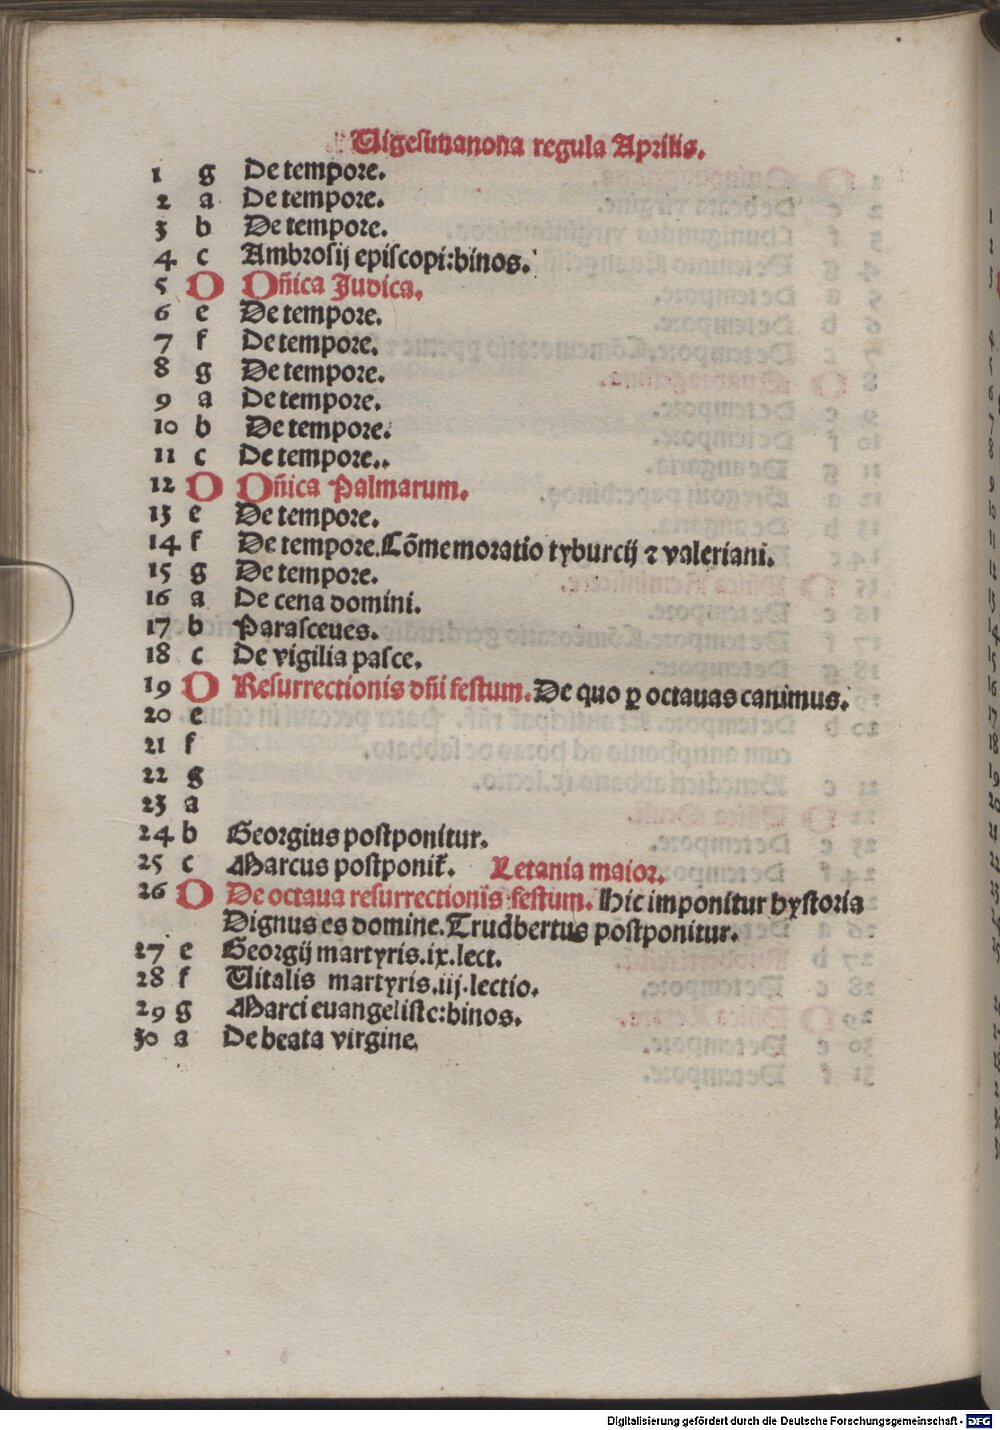 Vigesimanona regula Aprilis.
1 g De tempore.
2 a De tempore.
3 b De tempore.
4 c Ambrosij episcopi:binos.
5 D Dñica Judica.
6 e De tempore.
7 f De tempore.
8 g De tempore.
9 a De tempore.
10 b De tempore.
11 c De tempore..
12 D Dñica Palmarum.
13 e De tempore.
14 f De tempore.Cõmemoratio tyburcij ⁊ valeriani.
15 g De tempore.
16 a De cena domini.
17 b Parasceues.
18 c De vigilia pasce.
19 D Resurrectionis dñi festum.De quo ꝑ octauas canimus.
20 e
21 f
22 g
23 a
24 b Georgius postponitur.
25 c Marcus postponit̃. Letania maior.
26 D De octaua resurrectionis festum. Hic imponitur hystoria
Dignus es domine.Trudbertus postponitur.
27 e Georgij martyris.ix.lect.
28 f Uitalis martyris.iij.lectio.
29 g Marci euangeliste:binos.
30 a De beata virgine.
Digitalisierung gefördert durch die Deutsche Forschungsgemeinschaft - DFG